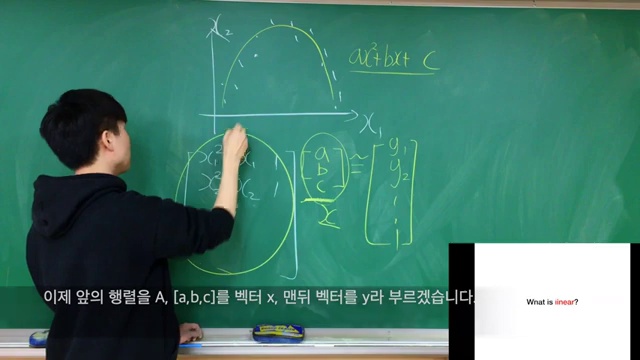 x₂
ax²+bx+c
x₁
x₁² x₁ 1
x₂² x₂ 1
a
b
c
x
≈
y₁
y₂
이제 앞의 행렬을 A, [a,b,c]를 벡터 x, 맨뒤 벡터를 y라 부르겠습니다.
What is iinear?